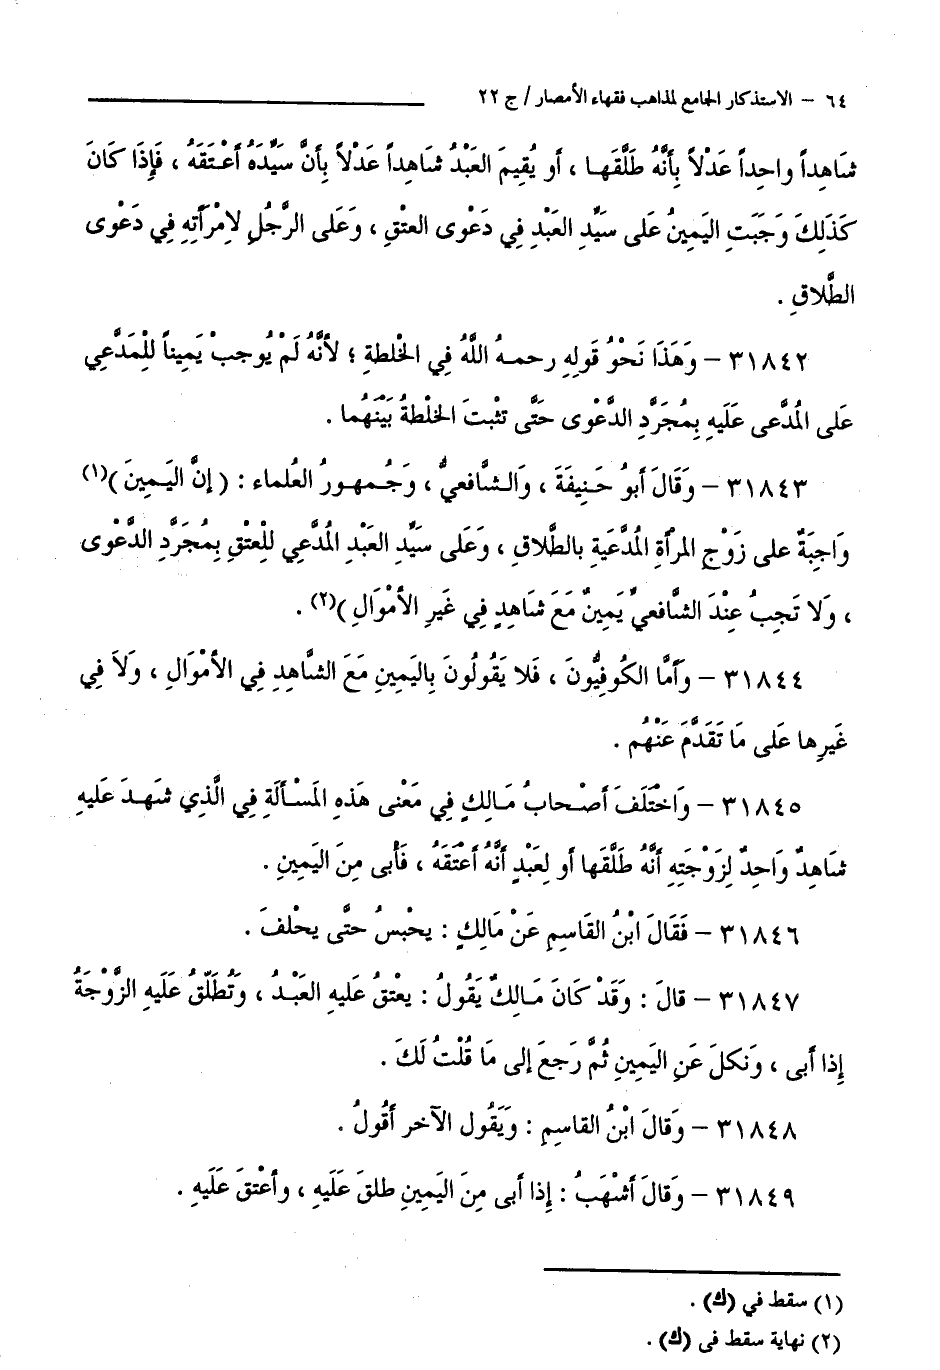 ٦٤ - الاستذكار الجامع لمذاهب فقهاء الأمصار / ج ٢٢
شَاهِداً واحِداً عَدْلاً بِأَنَّهُ طَلَّقَهـا ، أو يُقِيمَ العَبْدُ شَاهِداً عَدْلاً بِأَنَّ سَيِّدَهُ أَعْـتَقَهُ ، فَإِذَا كَانَ
كَذَلِكَ وَجَبَتِ اليَمِينُ عَلى سَيِّدِ العَبْدِ فِي دَعْوى العتْقِ ، وَعَلى الرَّجُلِ لامْرَأَتِهِ فِي دَعْوى
الطَّلاقِ .
٣١٨٤٢ - وَهَذَا نَحْوُ قَولِهِ رحمـهُ اللَّهُ فِي الخلطةِ ؛ لأنَّهُ لَمْ يُوجبْ يَمِيناً للْمَدَّعِي
عَلى المُدَّعى عَلَيهِ بِمُجَرَّدِ الدَّعْوى حَتَّى تثْبتَ الخلْطةُ بَيْنَهُما .
٣١٨٤٣ - وَقَالَ أَبُو حَنِيفَةَ ، وَالـشَّافعيُّ ، وَجُـمهـورُ العُلماء : ( إنَّ اليَـمِينَ )(١)
وَاجِبَةٌ على زَوْجِ المرْأةِ المُدَّعيةِ بالطَّلاقِ ، وَعَلى سَيِّدِ العَبْدِ المُدَّعي للْعتْقِ بِمُجَرَّدِ الدَّعْوى
، وَلا تَجِبُ عِنْدَ الشَّافعيِّ يَمِينٌ مَعَ شَاهِدٍ فِي غَيرِ الأمْوَالِ )(٢) .
٣١٨٤٤ - وَأمَّا الكُوفِيُّونَ ، فَلا يَقُولُونَ بِاليَمِينِ مَعَ الشَّاهِدِ فِي الأمْوَالِ ، وَلاَ فِي
غَيرِها عَلى مَا تَقَدَّمَ عَنْهُم .
٣١٨٤٥ - وَاخْتَلَفَ أصْـحابُ مَـالِكٍ فِي مَعْنى هَذِهِ المَسْـألَةِ فِي الَّذِي شَهـدَ عَليهِ
شَاهِدٌ وَاحِدٌ لِزَوْجَتِهِ أنَّهُ طَلَّقَها أو لِعَبْدٍ أنَّهُ أعْتَقَهُ ، فَأبى مِنَ اليَمِينِ .
٣١٨٤٦ - فَقَالَ ابْنُ القَاسِمِ عَنْ مَالِكٍ : يحْبسُ حتَّى يحْلفَ .
٣١٨٤٧ - قالَ : وَقَدْ كَانَ مَـالِكٌ يَقُولُ : يعْتقُ عَليهِ العَبْـدُ ، وَتُطَلّقُ عَلَيهِ الزَّوْجَةُ
إِذا أبى ، وَنكلَ عَنِ اليَمِينِ ثُمَّ رَجعَ إلى مَا قُلْتُ لَكَ .
٣١٨٤٨ - وَقالَ ابْنُ القاسِمِ : وَيَقُول الآخر أَقُولُ .
٣١٨٤٩ - وَقالَ أشْهَبُ : إذا أبى مِنَ اليَمِينِ طلقَ عَلَيهِ ، وأعْتقَ عَلَيهِ .
(١) سقط في (ك) .
(٢) نهاية سقط في (ك) .